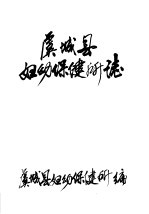 虞城县
妇幼保健所志
虞城县妇幼保健所编